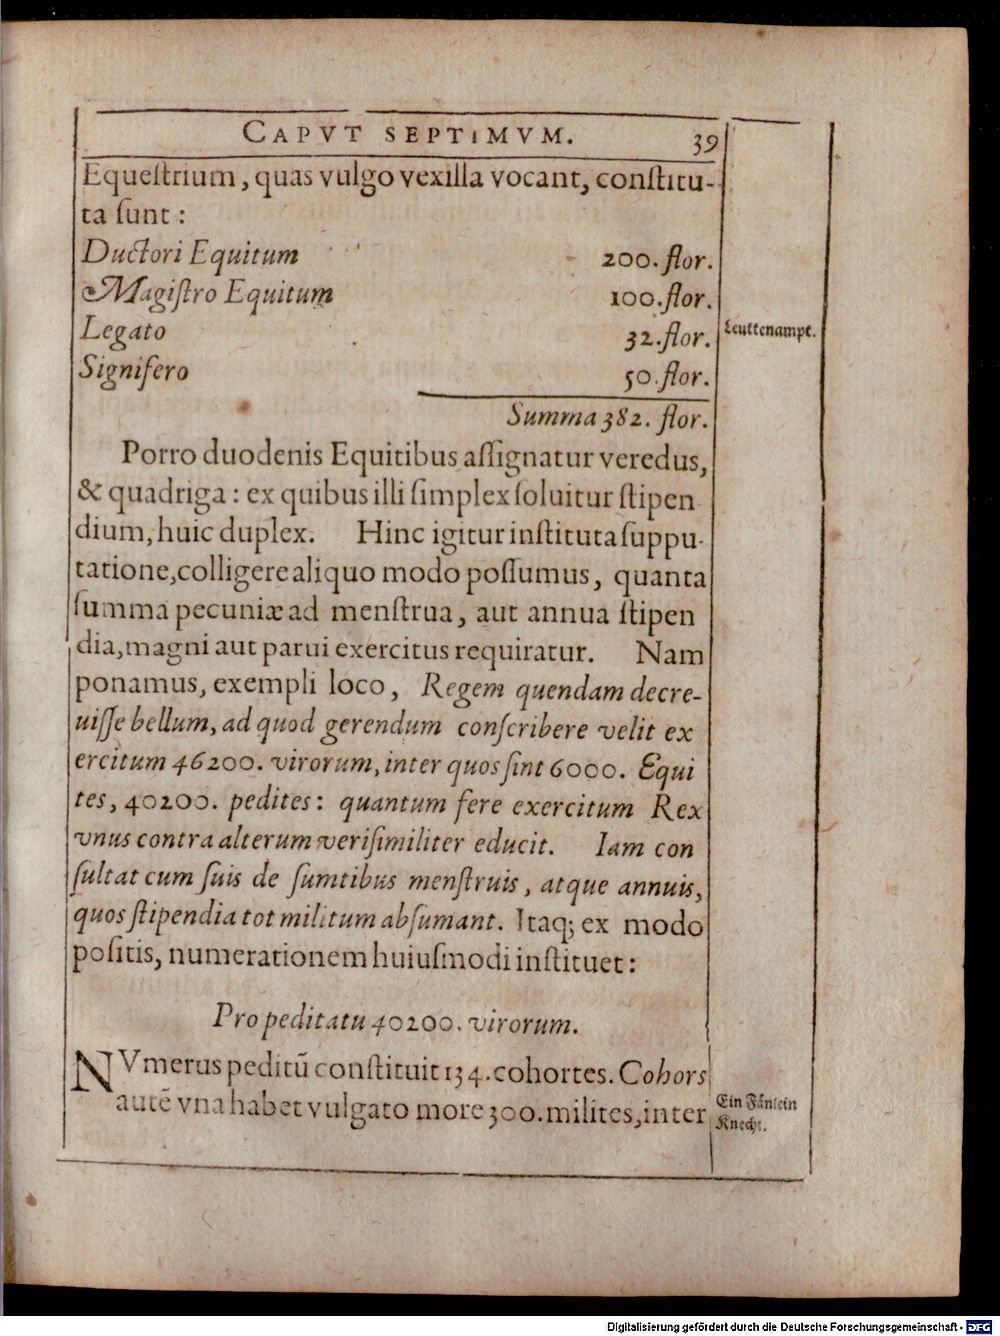 CAPVT SEPTIMVM. 39
Equeſtrium, quas vulgo vexilla vocant, conſtitu-
ta ſunt:
Ductori Equitum 200. flor.
Magiſtro Equitum 100. flor.
Legato 32. flor.
Leuttenampt.
Signifero 50. flor.
Summa 382. flor.
Porro duodenis Equitibus aſſignatur veredus,
& quadriga: ex quibus illi ſimplex ſoluitur ſtipen
dium, huic duplex. Hinc igitur inſtituta ſuppu-
tatione, colligere aliquo modo poſſumus, quanta
ſumma pecuniæ ad menſtrua, aut annua ſtipen
dia, magni aut parui exercitus requiratur. Nam
ponamus, exempli loco, Regem quendam decre-
uiſſe bellum, ad quod gerendum conſcribere velit ex
ercitum 46200. virorum, inter quos ſint 6000. Equi
tes, 40200. pedites: quantum fere exercitum Rex
vnus contra alterum veriſimiliter educit. Iam con
ſultat cum ſuis de ſumtibus menſtruis, atque annuis,
quos ſtipendia tot militum abſumant. Itaq; ex modo
poſitis, numerationem huiuſmodi inſtituet:
Pro peditatu 40200. virorum.
NVmerus peditũ conſtituit 134. cohortes. Cohors
autẽ vna habet vulgato more 300. milites, inter
Ein Fänlein
Knecht.
Digitalisierung gefördert durch die Deutsche Forschungsgemeinschaft - DFG